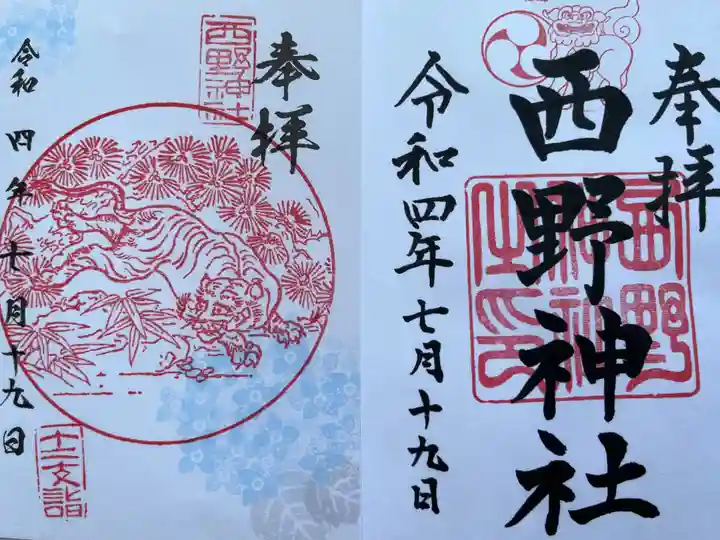 奉拝
西野神社
令和四年七月十九日
十二支詣
奉拝
西野神社
西野神社之印
令和四年七月十九日